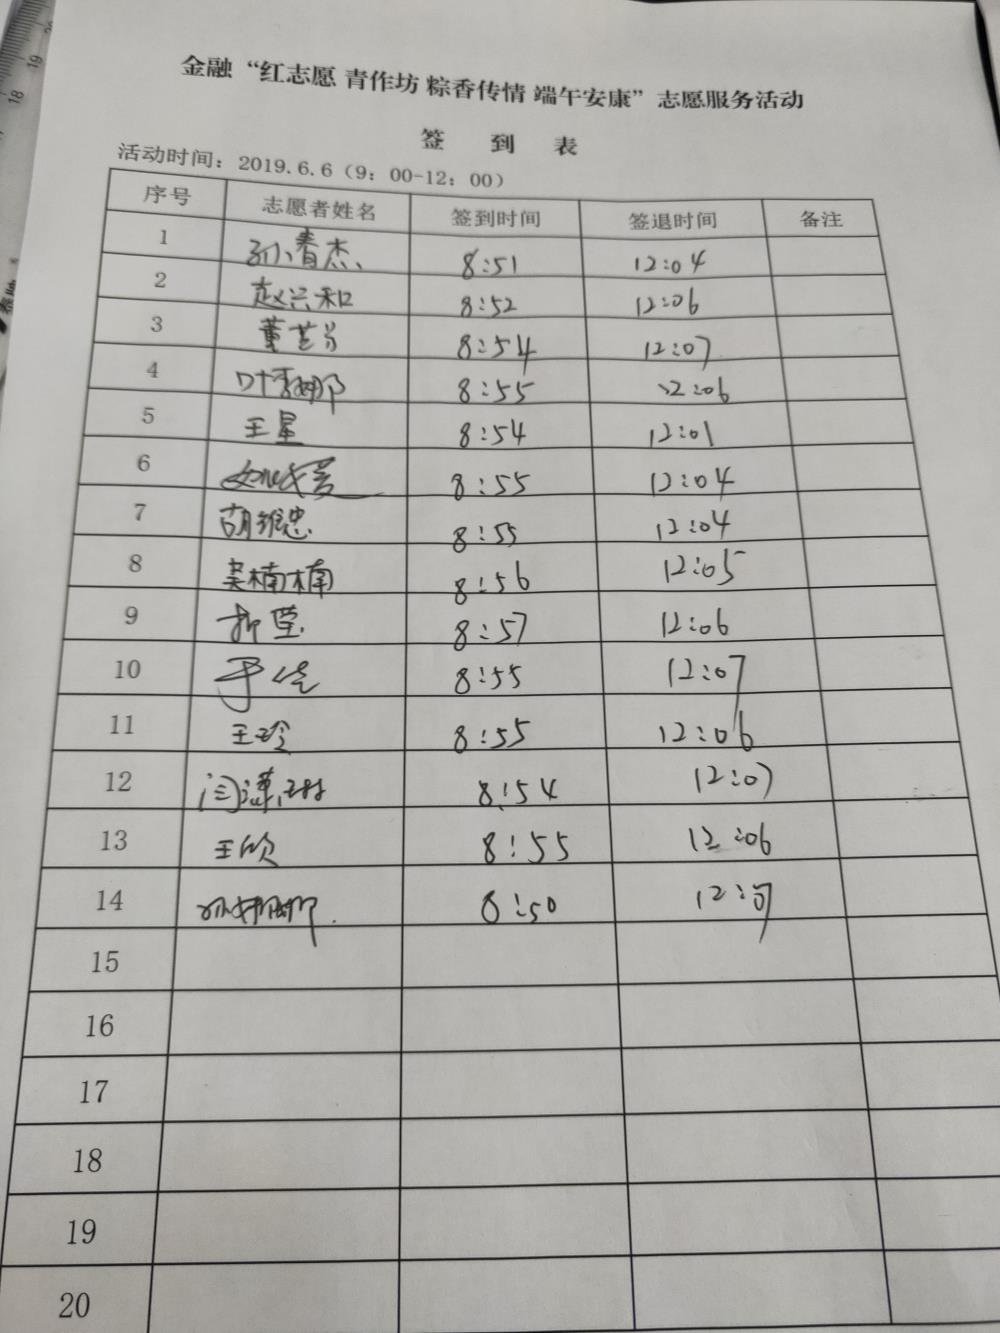 金融“红志愿 青作坊 粽香传情 端午安康”志愿服务活动
签 到 表
活动时间：2019.6.6（9：00-12：00）
序号 志愿者姓名 签到时间 签退时间 备注
1 孙青杰 8:51 12:04
2 赵兴和 8:52 12:06
3 董芸芬 8:54 12:07
4 8:55 12:06
5 王星 8:54 12:01
6 8:55 12:04
7 胡维忠 8:55 12:04
8 吴楠楠 8:56 12:05
9 8:57 12:06
10 于佳 8:55 12:07
11 王玲 8:55 12:06
12 8:54 12:07
13 王欣 8:55 12:06
14 8:50 12:07
15
16
17
18
19
20
18
19